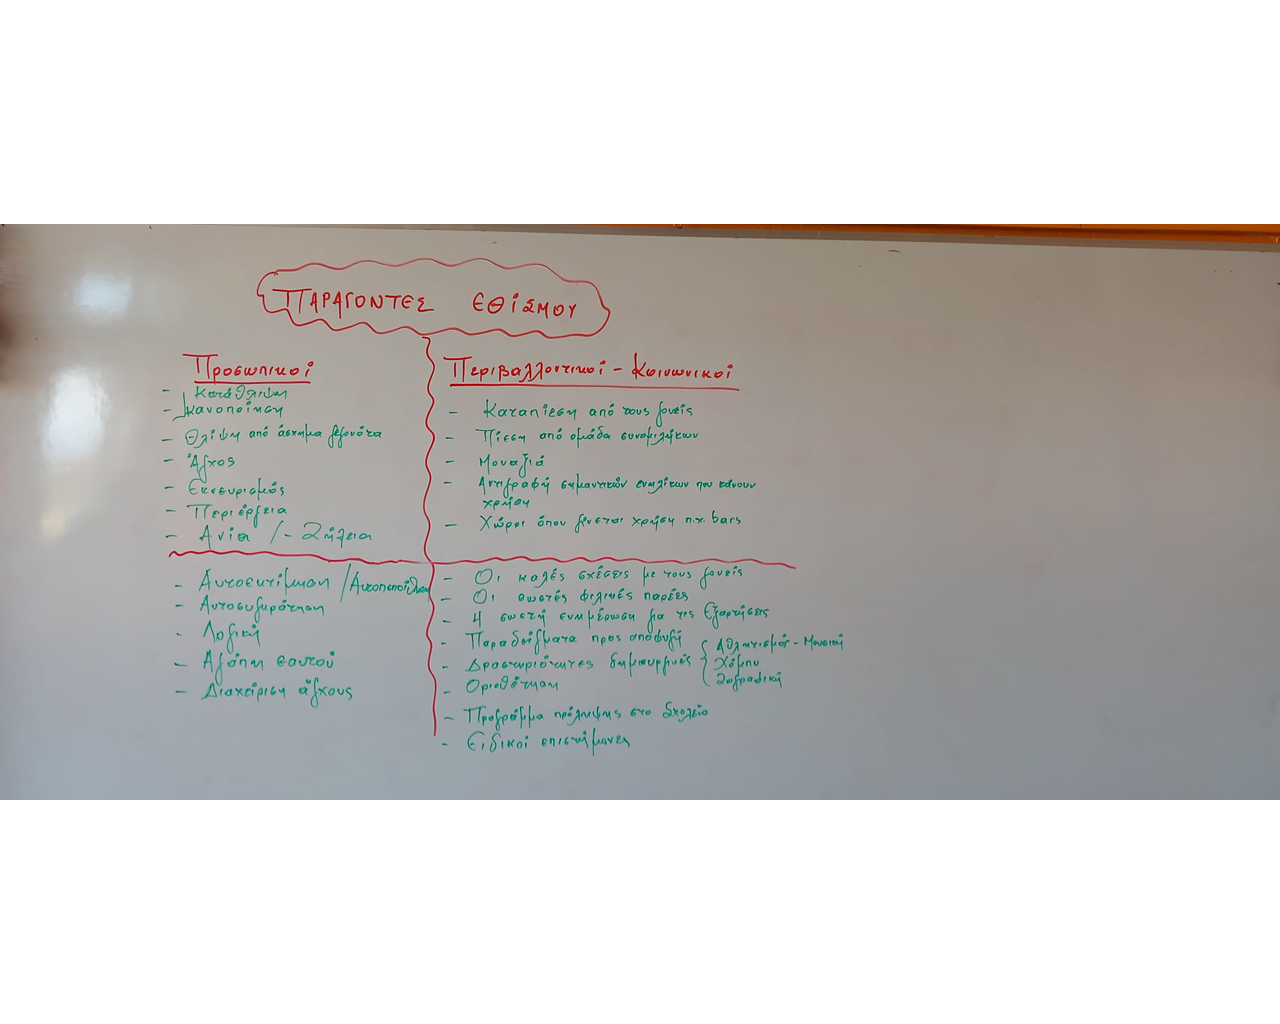 ΠΑΡΑΓΟΝΤΕΣ ΕΘΙΣΜΟΥ
Προσωπικοί
- Κατάθλιψη
- Ικανοποίηση
- Θλίψη από άσχημα γεγονότα
- Άγχος
- Εκνευρισμός
- Περιέργεια
- Ανία / - Ζήλεια
Περιβαλλοντικοί - Κοινωνικοί
- Καταπίεση από τους γονείς
- Πίεση από ομάδα συνομιλήκων
- Μοναξιά
- Αντιγραφή σημαντικών ενηλίκων που κάνουν
χρήση
- Χώροι όπου γίνεται χρήση π.χ. bars
- Αυτοεκτίμηση / Αυτοπεποίθηση
- Αυτοσυγκράτηση
- Λογική
- Αγάπη εαυτού
- Διαχείριση άγχους
- Οι καλές σχέσεις με τους γονείς
- Οι σωστές φιλικές παρέες
- Η σωστή ενημέρωση για τις Εξαρτήσεις
- Παραδείγματα προς αποφυγή
- Δραστηριότητες δημιουργικές
Αθλητισμός - Μουσική
Χόμπυ
Ζωγραφική
- Οριοθέτηση
- Πρόγραμμα πρόληψης στο Σχολείο
- Ειδικοί επιστήμονες